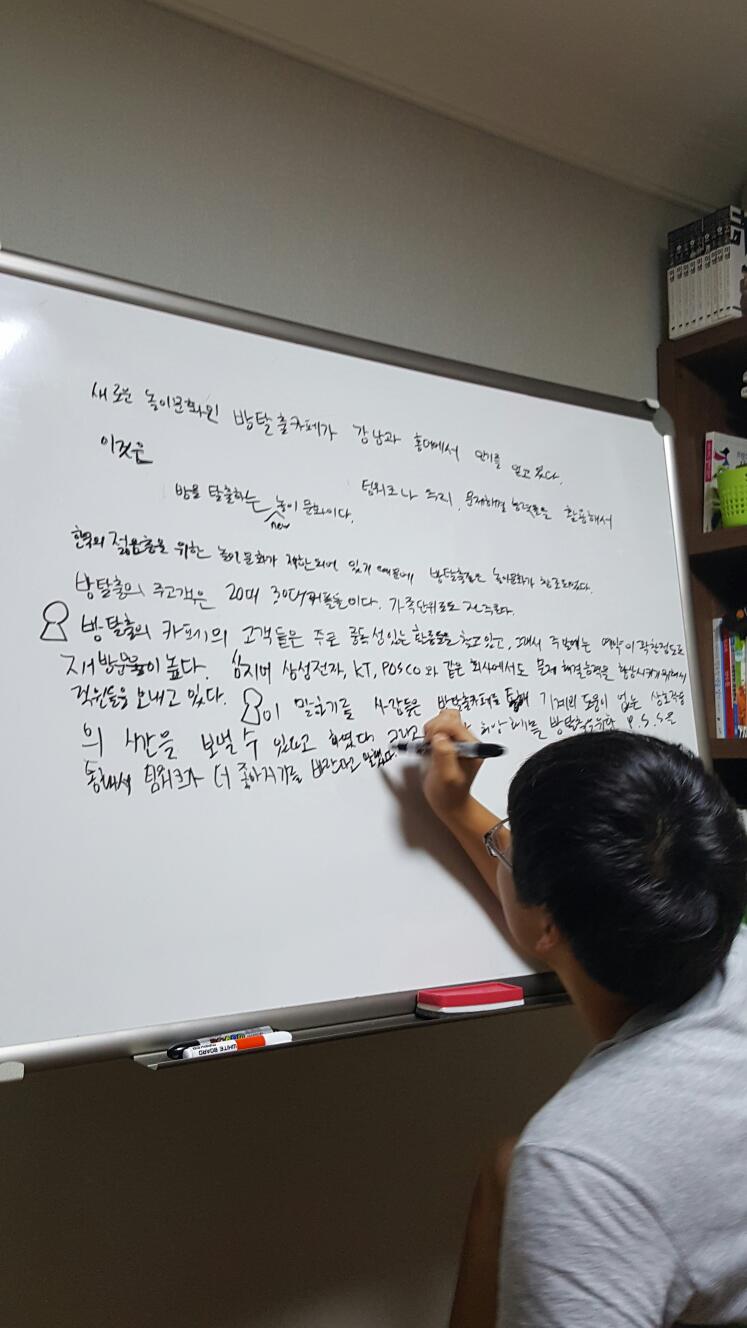 새로운 놀이문화인 방탈출카페가 강남과 홍대에서 인기를 얻고 있다.
이것은
방을 탈출하는 놀이 문화이다. 팀워크나 추리, 문제해결 능력들을 활용해서
new
한국의 젊은층을 위한 놀이문화가 제한되어 있기 때문에 방탈출같은 놀이문화가 창조되었다.
방탈출의 주고객은 20대 30대 커플들이다. 가족단위로도
방탈출의 카페의 고객들은 주로 활동들을 찾고 있고, 그래서 주말에는 예약이 꽉찬정도로
재방문율이 높다. 심지어 삼성전자, KT, POSCO와 같은 회사에서도 문제 해결능력을 향상시키기 위해서
직원들을 보내고 있다. 이 말하기를 사람들은 방탈출카페를 통해 기계의 도움이 없는 상호작용
의 시간을 보낼 수 있다고 하였다 그리고 방탈출 P.S.S은
통해서 팀워크가 더 좋아지기를 바란다고
WHITE BOARD